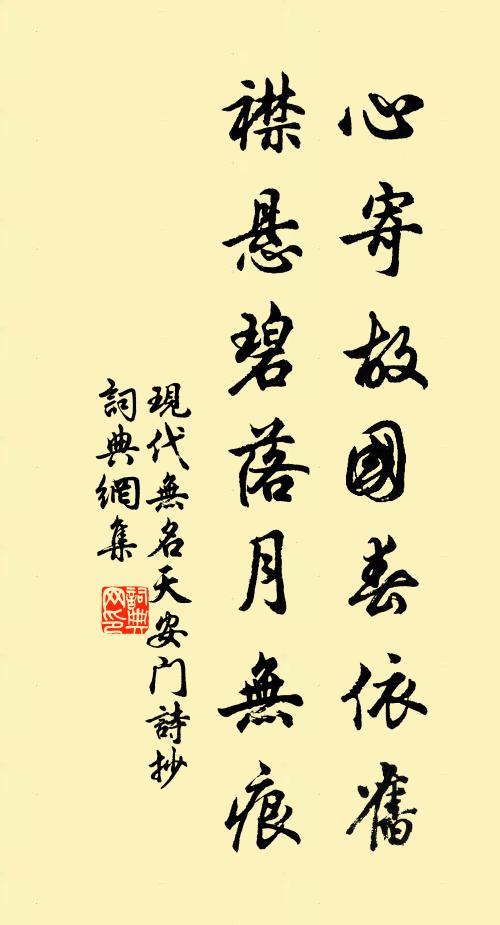 心寄故國春依舊
襟悬碧落月無痕
現代無名天安门詩抄
詞典網集
詞典网印